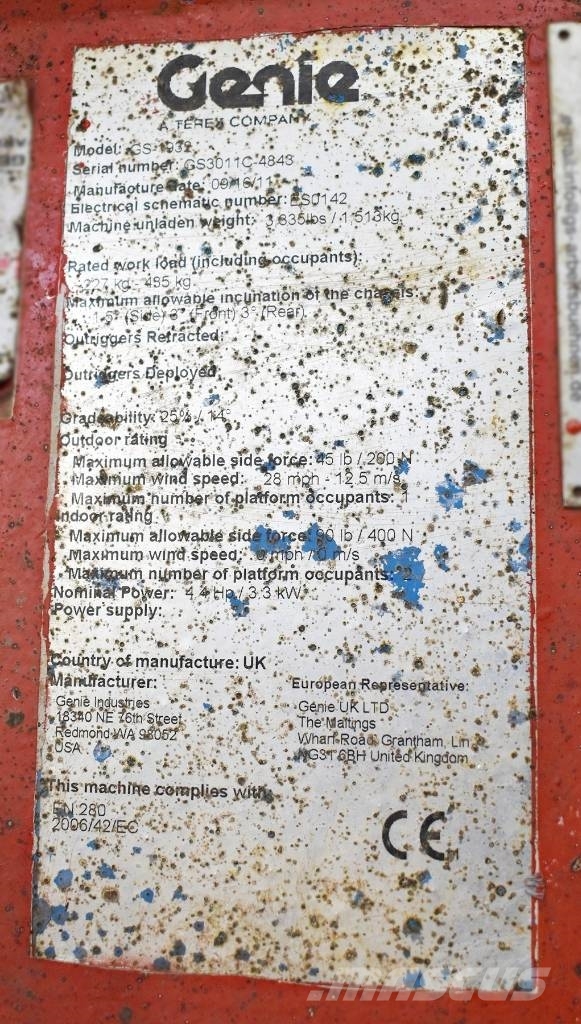 Genie
A TEREX COMPANY
Model: GS-1932
Serial number: GS3011C-4843
Manufacture date: 09/16/11
Electrical schematic number: ES0142
Machine unladen weight: 3,335lbs / 1,513kg
Rated work load (including occupants):
227 kg -
Maximum allowable inclination of the chassis:
1.5° (Side) 3° (Front) 3° (Rear)
Outriggers Retracted:
Outriggers Deployed
Gradeability: 25% / 14°
Outdoor rating
Maximum allowable side force: 45 lb / 200 N
Maximum wind speed: 28 mph - 12.5 m/s
Maximum number of platform occupants: 1
Indoor rating
Maximum allowable side force: 90 lb / 400 N
Maximum wind speed: 0 mph / 0 m/s
Maximum number of platform occupants: 2
Nominal Power: 4.4 Hp / 3.3 kW
Power supply:
Country of manufacture: UK
Manufacturer:
Genie Industries
18340 NE 76th Street
Redmond WA 98052
USA
European Representative:
Genie UK LTD
The Maltings
Wharf Road, Grantham, Lin
NG31 6BH United Kingdom
This machine complies with:
EN 280
2006/42/EC
CE
MASCUS